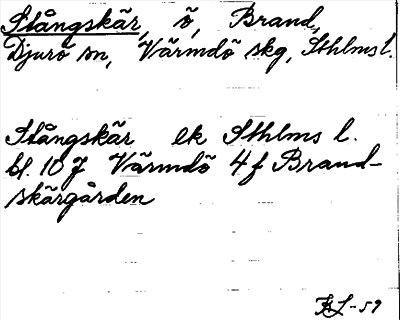 Stångskär, ö, Brand,
Djurö sn, Värmdö skg, Sthlms l.
Stångskär ek Sthlms l.
bl. 107 Värmdö 4f Brand-
skärgården
-59